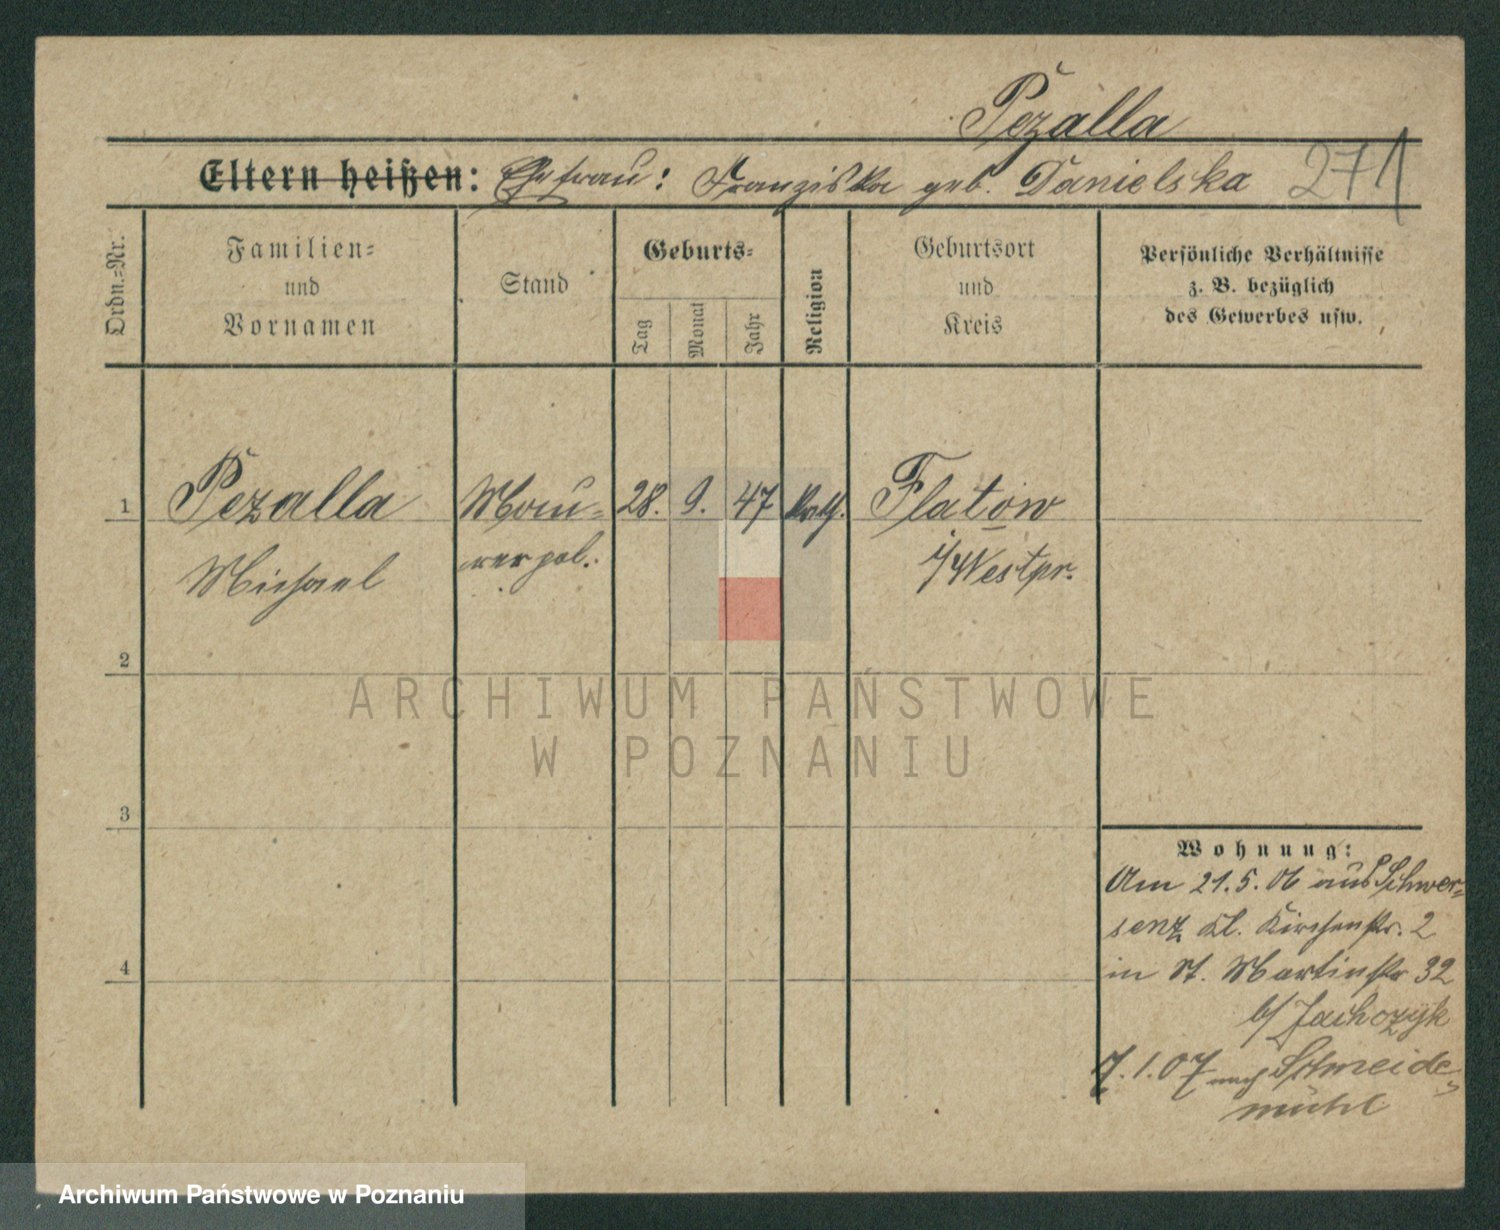 Pezalla
Eltern heißen: Ehefrau: Franziska geb. Danielska 271
Ordn.-Nr.
Familien-
und
Vornamen
Stand
Geburts-
Tag
Monat
Jahr
Religion
Geburtsort
und
Kreis
Persönliche Verhältnisse
z. B. bezüglich
des Gewerbes usw.
1 Pezalla Mau- 28. 9. 47 kath. Flatow
Michael rerpol. i/Westpr.
2
ARCHIWUM PAŃSTWOWE
W POZNANIU
3
Wohnung:
Am 21.5.06 aus Schwer-
senz kl. Kirchenstr. 2
4
in St. Martinstr 32
b/
7.1.07 nach Schneide-
mühl
Archiwum Państwowe w Poznaniu